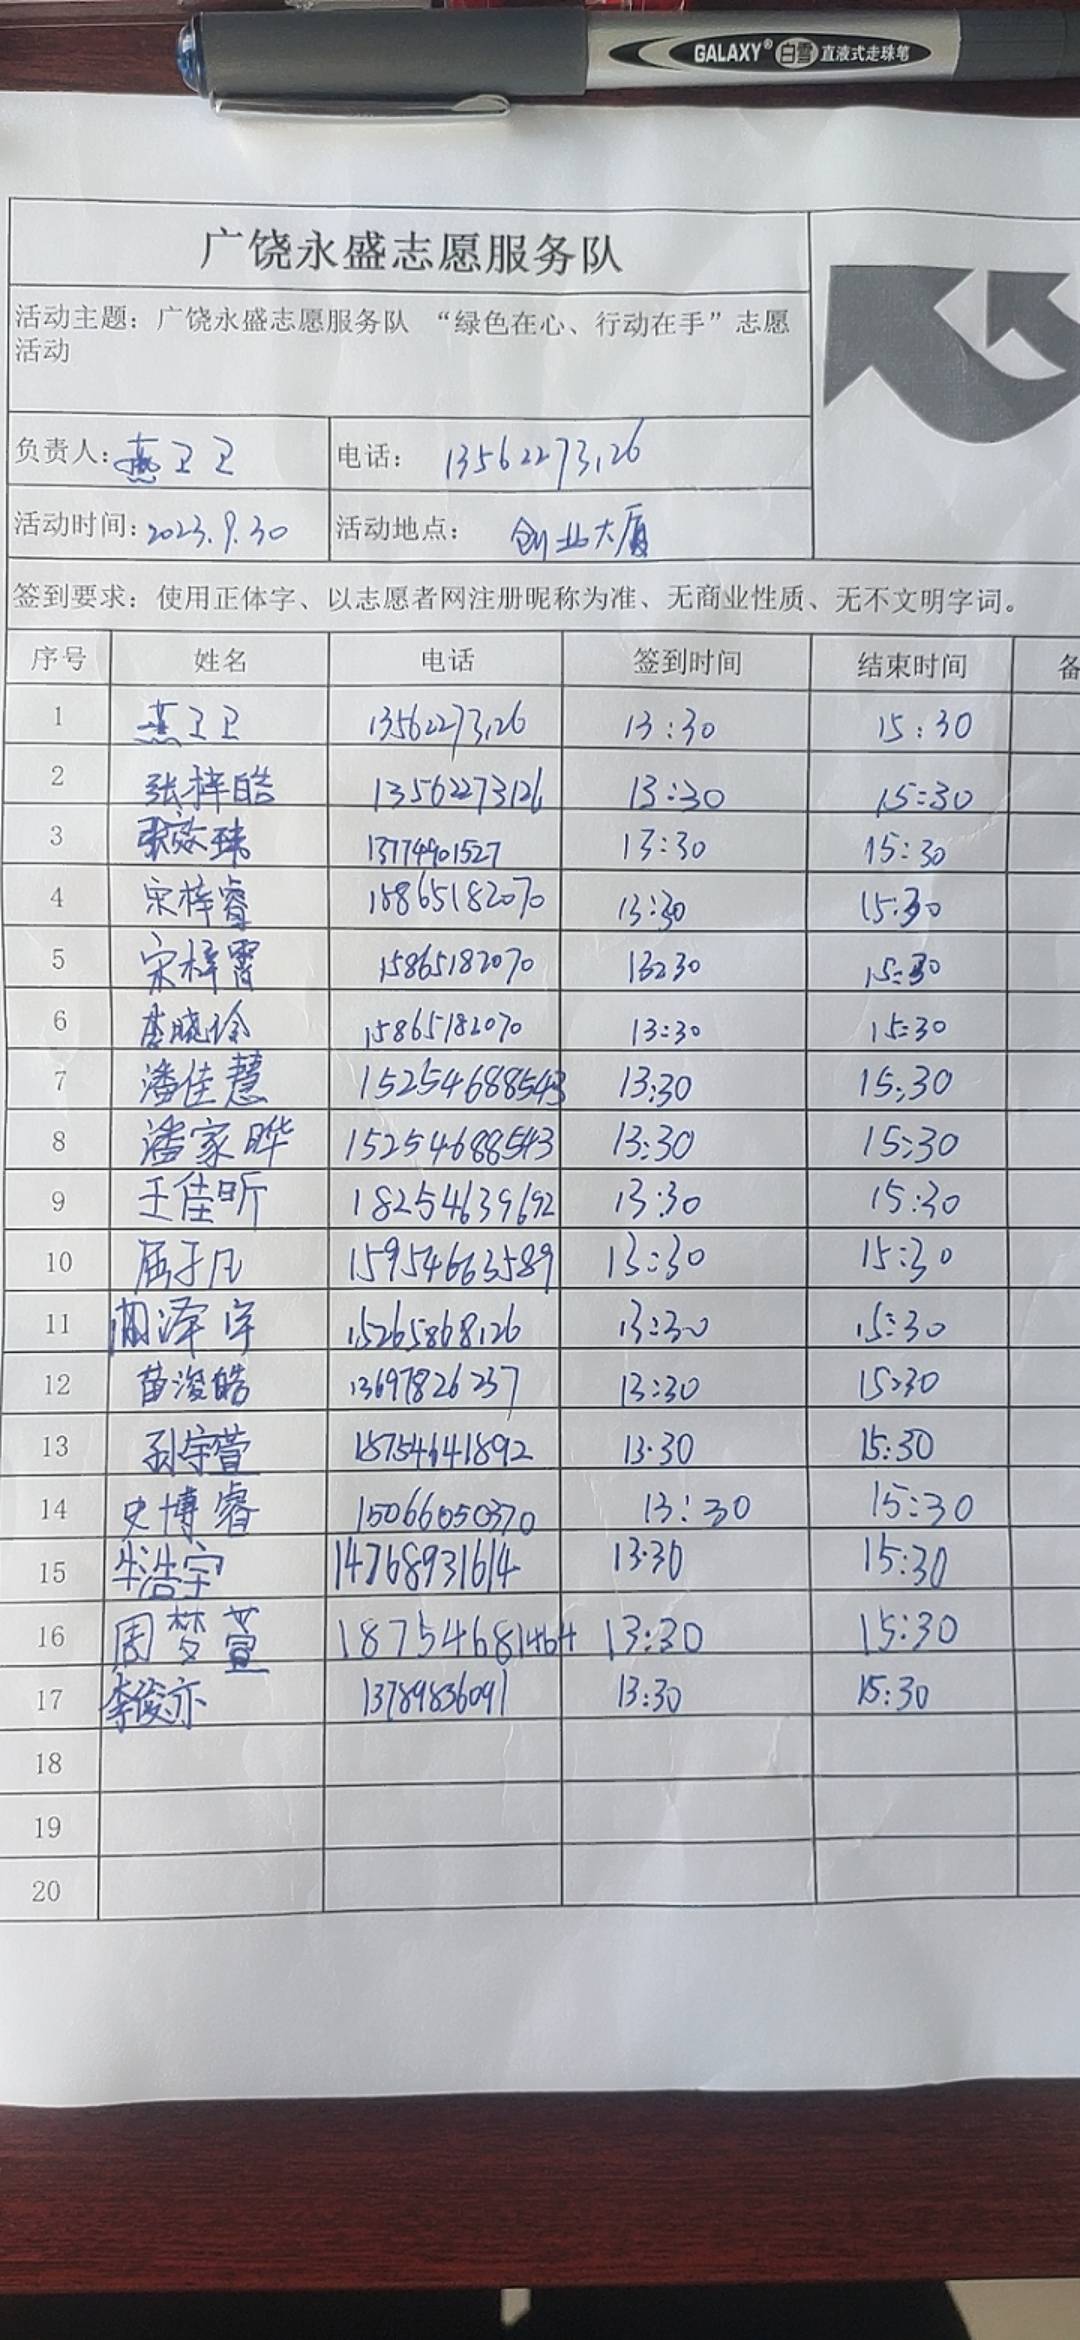 GALAXY® 白雪 直液式走珠笔
广饶永盛志愿服务队
活动主题：广饶永盛志愿服务队 “绿色在心、行动在手”志愿
活动
负责人：燕卫卫 电话：13562273126
活动时间：2023.9.30 活动地点：创业大厦
签到要求：使用正体字、以志愿者网注册昵称为准、无商业性质、无不文明字词。
序号 姓名 电话 签到时间 结束时间 备
1 燕卫卫 13562273126 13:30 15:30
2 张梓皓 13562273126 13:30 15:30
3 13774901527 13:30 15:30
4 宋梓睿 15865182070 13:30 15:30
5 宋梓霄 15865182070 13:30 15:30
6 李晓玲 15865182070 13:30 15:30
7 潘佳慧 15254688543 13:30 15:30
8 潘家晔 15254688543 13:30 15:30
9 王佳昕 18254639692 13:30 15:30
10 屈子凡 15954663589 13:30 15:30
11 泽宇 15265868126 13:30 15:30
12 苗浚皓 13697826237 13:30 15:30
13 孙宇萱 18754641892 13:30 15:30
14 史博睿 15066050370 13:30 15:30
15 牛浩宇 14768931614 13:30 15:30
16 周梦萱 18754681464 13:30 15:30
17 李俊亦 13789836091 13:30 15:30
18
19
20